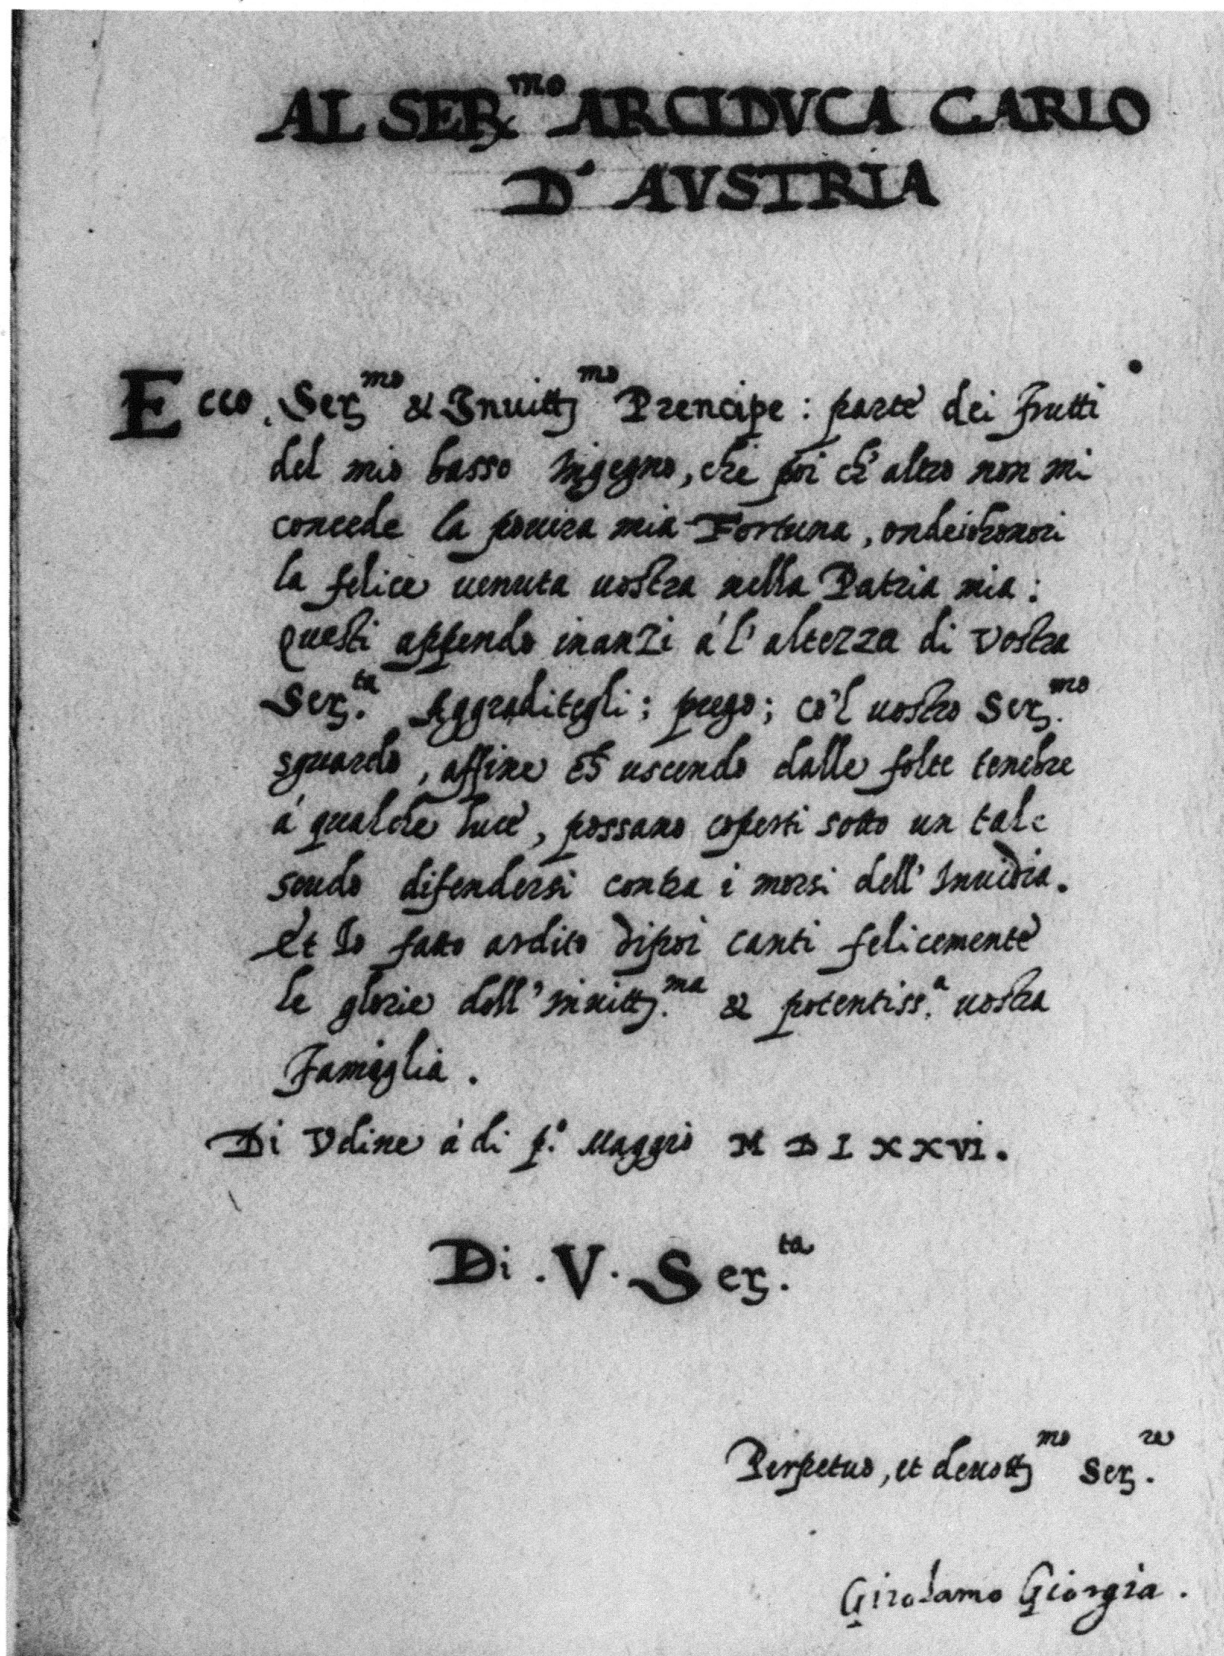 AL SER.mo ARCIDVCA CARLO
D' AVSTRIA
Ecco, Ser.mo & Inuitt.mo Prencipe: parte dei frutti
del mio basso ingegno, che poi ch' altro non mi
concede la pouera mia Fortuna, ond'io honori
la felice uenuta uostra nella Patria mia:
Questi appendo inanzi à l' altezza di Vostra
Ser.ta Aggraditegli; prego; co'l uostro Ser.mo
sguardo, affine ch' uscendo dalle folte tenebre
à qualche luce, possano coperti sotto un tale
scudo difendersi contra i morsi dell' Inuidia.
Et Io fatto ardito dipoi canti felicemente
le glorie dell' inuitt.ma & potentiss.a uostra
Famiglia.
Di Vdine à di p.o Maggio M D L X X VI.
Di .V. Ser.ta
Perpetuo, et deuott.mo Ser.re
Girolamo Giorgia.